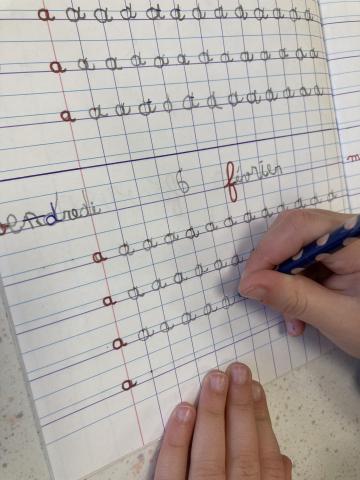 a a a a a a a a a a a a a
a a a a a a a a a a a a a
a a a a a a a a a a a a a
vendredi 6 février
a a a a a a a a a a a a a
a a a a a a a
a a a a a a a
a